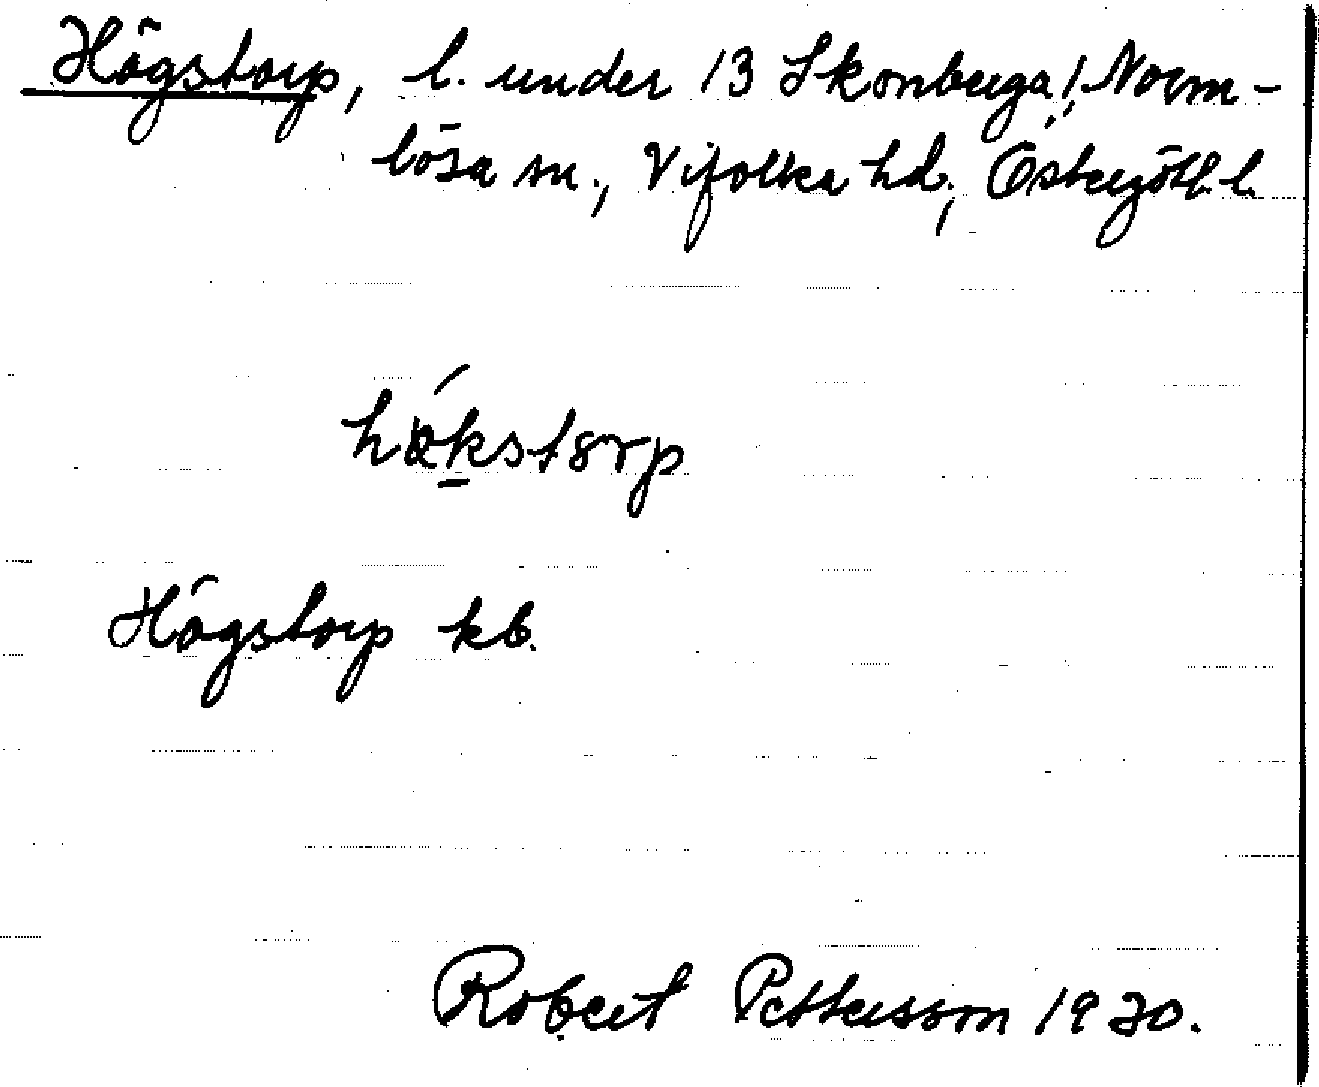 Högstorp, l. under 13 Skonberga!, Norm-
lösa sn., Vifolka hd., Östergötl. l.
hö́kstorp
Högstorp kb.
Robert Pettersson 1930.